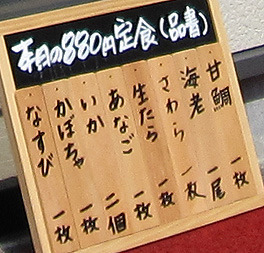 本日の880円定食(品書)
甘鯛 一枚
海老 一尾
さわら 一枚
生たら 一枚
あなご 二個
いか 一枚
かぼちゃ 一枚
なすび 一枚